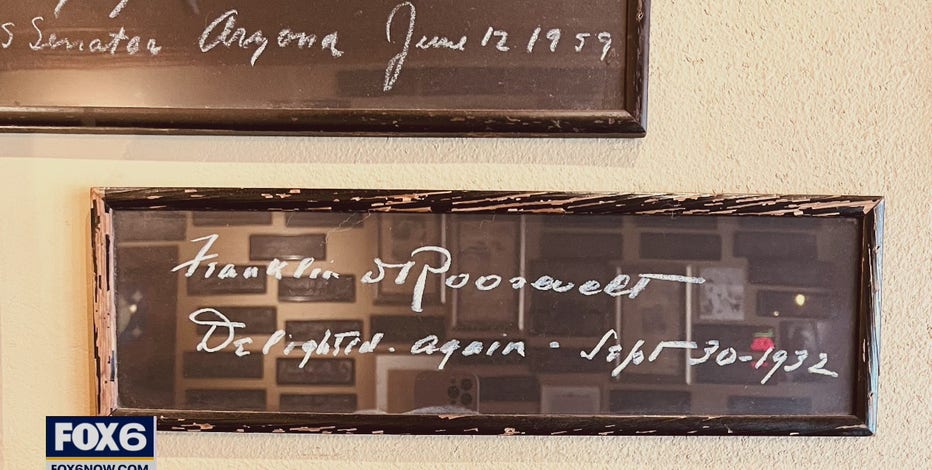 s Senator Aryona June 12 1959
Franklin D Roosevelt
Delighted - again - Sept 30-1932
FOX6
FOX6NOW.COM